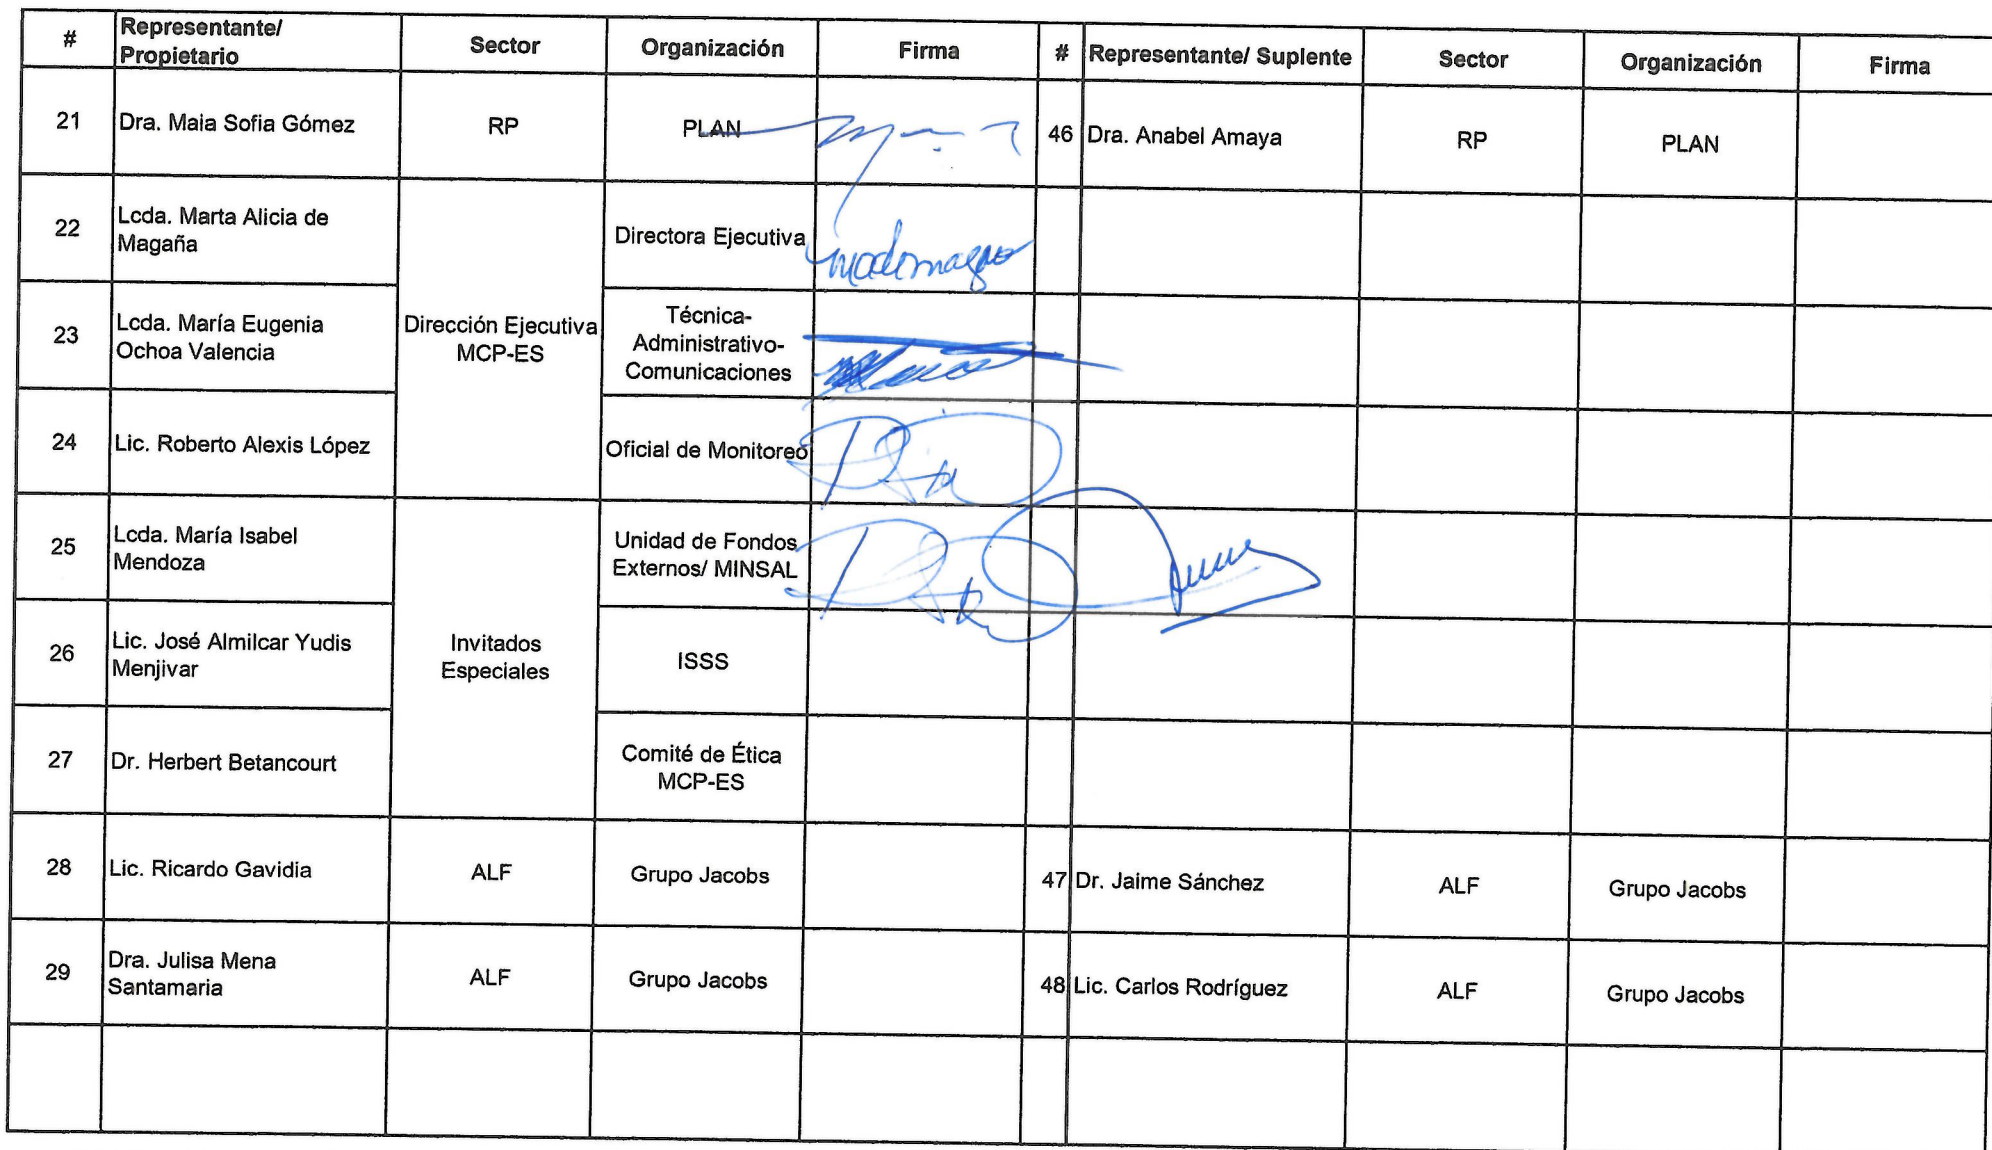 # Representante/ Propietario Sector Organización Firma # Representante/ Suplente Sector Organización Firma
21 Dra. Maia Sofia Gómez RP PLAN 46 Dra. Anabel Amaya RP PLAN
22 Lcda. Marta Alicia de Magaña Directora Ejecutiva
Dirección Ejecutiva MCP-ES
23 Lcda. María Eugenia Ochoa Valencia Técnica-Administrativo-Comunicaciones
24 Lic. Roberto Alexis López Oficial de Monitoreo
25 Lcda. María Isabel Mendoza Unidad de Fondos Externos/ MINSAL
26 Lic. José Almilcar Yudis Menjivar Invitados Especiales ISSS
27 Dr. Herbert Betancourt Comité de Ética MCP-ES
28 Lic. Ricardo Gavidia ALF Grupo Jacobs 47 Dr. Jaime Sánchez ALF Grupo Jacobs
29 Dra. Julisa Mena Santamaria ALF Grupo Jacobs 48 Lic. Carlos Rodríguez ALF Grupo Jacobs